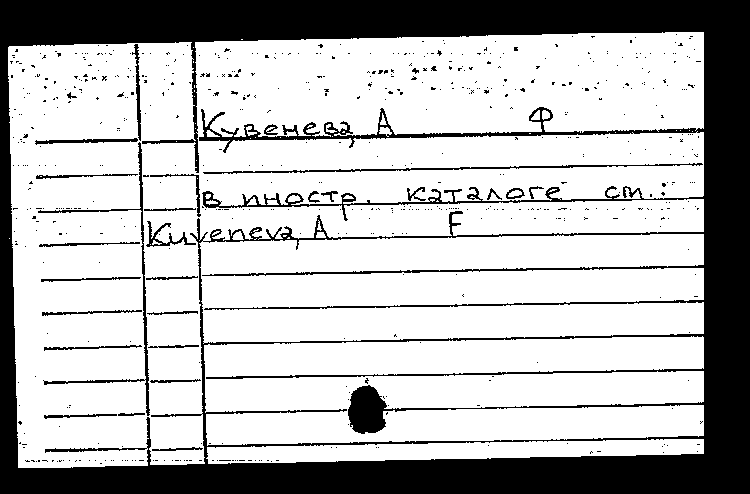 Кувенева, А Ф
в иностр. каталоге ст.:
Kuveneva, A F